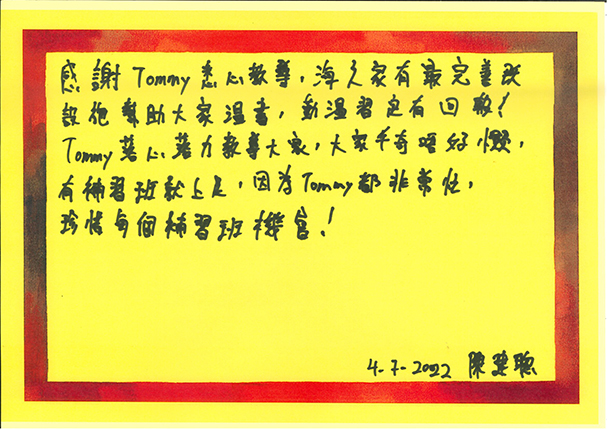 感謝Tommy悉心教導，海久家有最完善設
設施幫助大家溫書，勤溫習定有回報！
Tommy落心落力教導大家，大家千奇唔好懶，
有補習班就上足，因為Tommy都非常忙，
珍惜每個補習班機會！
4-7-2022 陳 聰